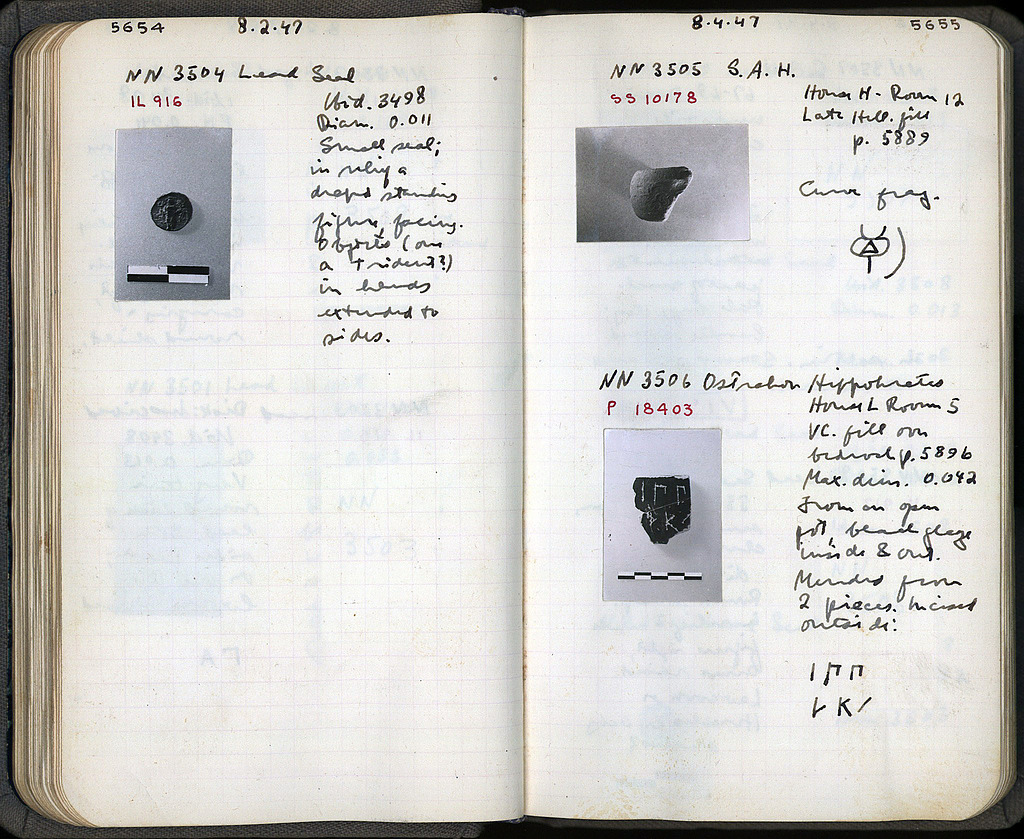 5654 8.2.47
NN 3504 Lead Seal
IL 916
Ibid. 3498
Diam. 0.011
Small seal;
in relief a
draped standing
figure, facing.
Objects (one
a trident?)
in hands
extended to
sides.
8.4.47 5655
NN 3505 S.A.H.
SS 10178
House H - Room 12
Late Hell. fill
p. 5889
Curve frag.
NN 3506 Ostrakon Hippokrates
P 18403
House L Room 5
VC. fill over
bedrock p. 5896
Max. dim. 0.042
From an open
pot, black glaze
inside & out.
Mended from
2 pieces. Incised
outside:
ΙΠΠ
Κ